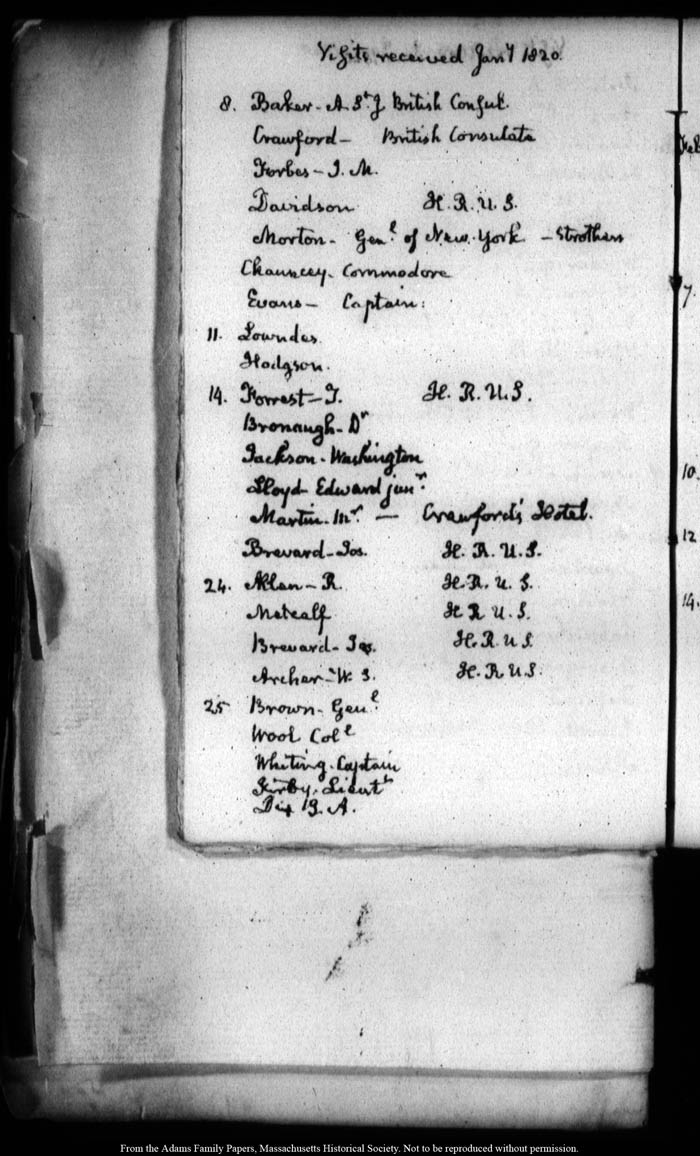 Visits received Jany 1820.
8. Baker - A. St. J. British Consul.
Crawford - British Consulate
Forbes - J. M.
Davidson H. R. U. S.
Morton - Genl. of New-York - Strothers
Chauncey - Commodore
Evans - Captain:
11. Lowndes.
Hodgson.
14. Forrest - T. H. R. U. S.
Bronaugh - Dr
Jackson - Washington
Lloyd - Edward junr.
Martin - Mr. - Crawford's Hotel.
Brevard - Jos. H. R. U. S.
24. Allen - R. H. R. U. S.
Metcalf H R U. S.
Brevard - Jos. H. R. U. S.
Archer - W. S. H. R U S.
25 Brown - Genl.
Wool Coll
Whiting - Captain
Kirby. Lieutt
Dix I9. A.
7.
10.
12
14.
From the Adams Family Papers, Massachusetts Historical Society. Not to be reproduced without permission.